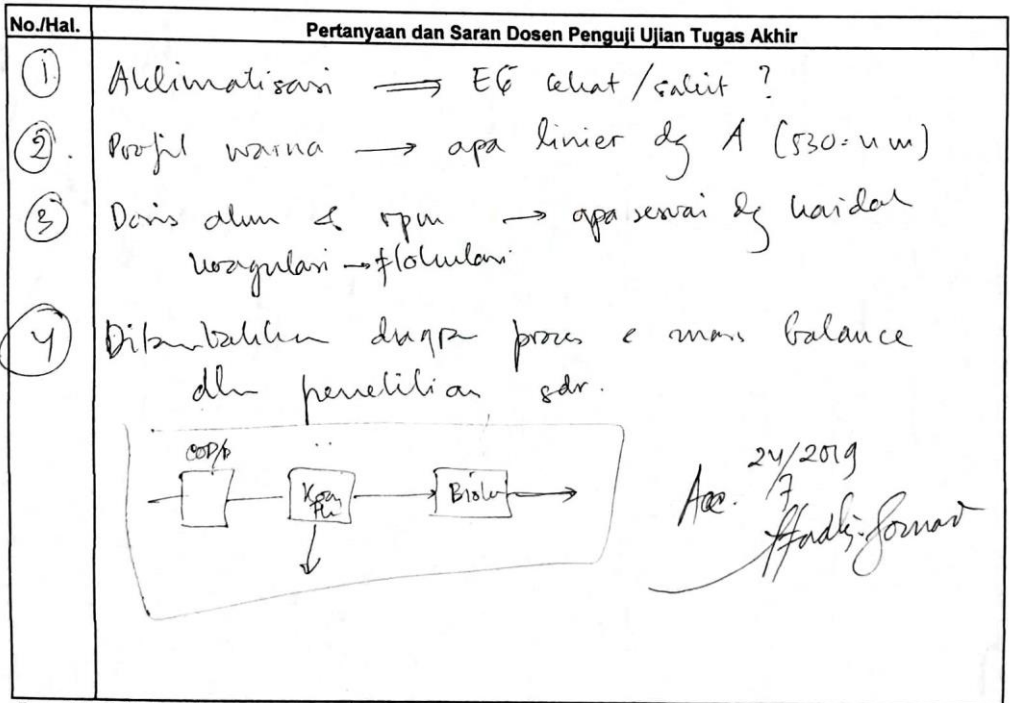 No./Hal.
Pertanyaan dan Saran Dosen Penguji Ujian Tugas Akhir
1. Aklimatisasi ⟹ EG sehat/sakit ?
2. Profil warna → apa linier dg A (530 nm)
3 Dosis alum & rpm → apa sesuai dg kaidah
koagulasi → flokulasi
4 Ditambahkan proses mass balance
dlm penelitian sdr.
Koag
Flo
24/7/2019
Acc.